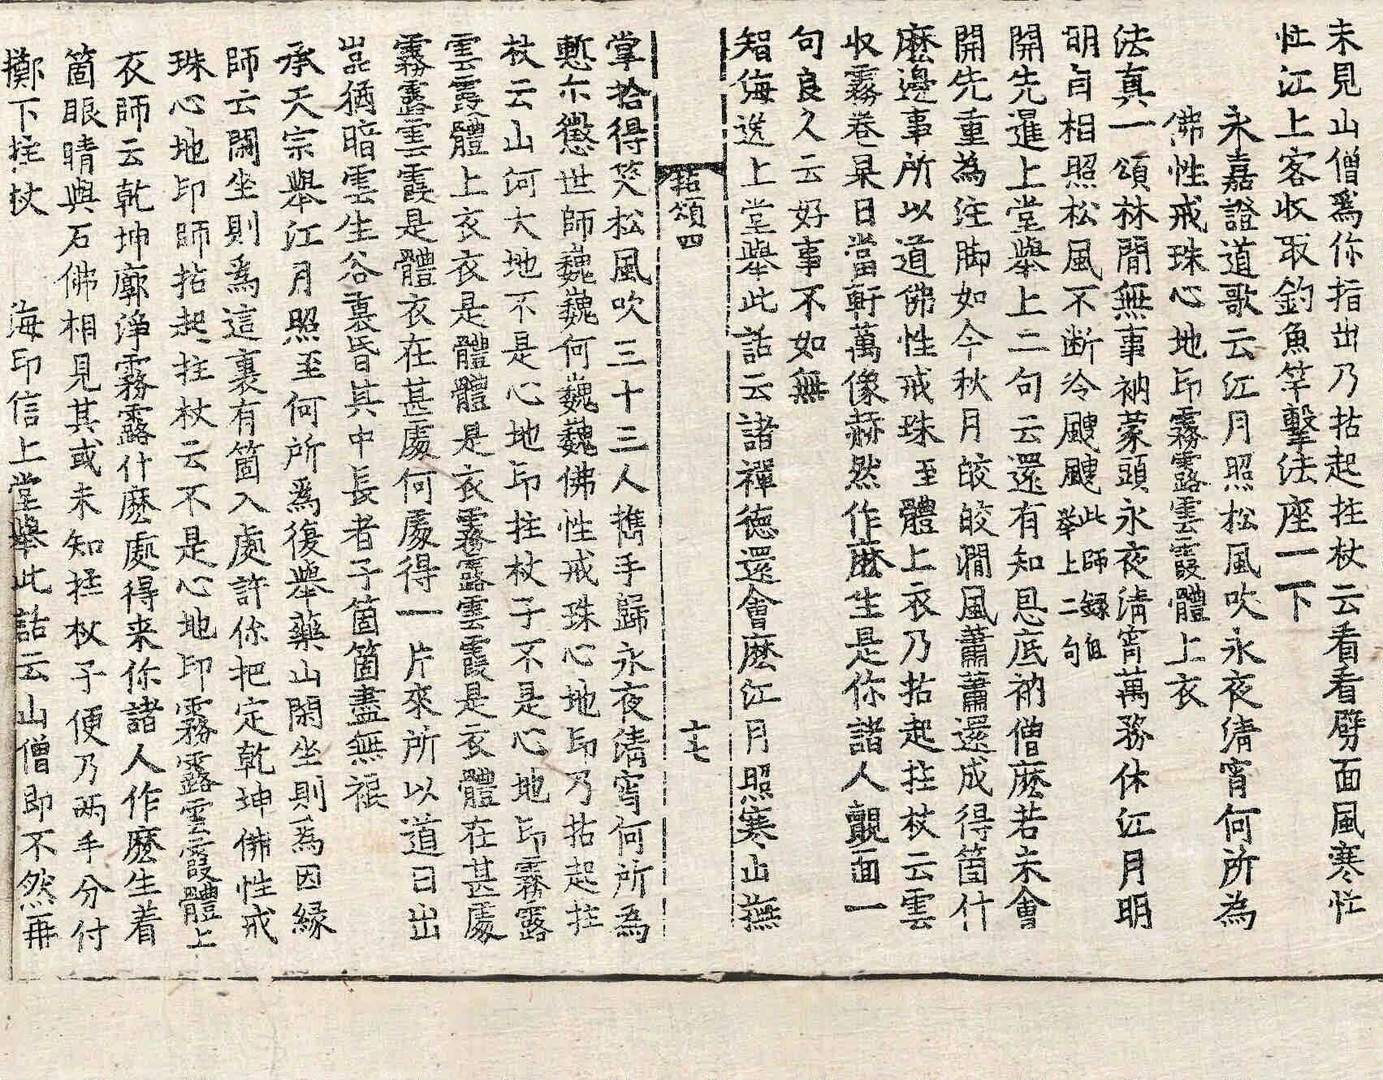 未見山僧爲你指出乃拈起拄杖云看看劈面風寒忙
忙江上客收取釣魚竿擊法座一下
永嘉證道歌云江月照松風吹永夜淸宵何所為
佛性戒珠心地印霧露雲霞體上衣
法真一頌林閒無事衲蒙頭永夜淸宵萬務休江月明
明自相照松風不断冷颼颼此師録但舉上二句
開先暹上堂舉上二句云還有知恩底衲僧麽若未會
開先重為注脚如今秋月皎皎澗風蕭蕭還成得箇什
麽邊事所以道佛性戒珠至體上衣乃拈起拄杖云雲
收霧卷杲日當軒萬像赫然作麽生是你諸人覿面一
句良久云好事不如無
智海逸上堂舉此話云諸禪德還會麽江月照寒山撫
拈頌四
十七
掌拾得笑松風吹三十三人擕手歸永夜淸宵何所為
慙亦懲世師巍巍何巍巍佛性戒珠心地印乃拈起拄
杖云山河大地不是心地印拄杖子不是心地印霧露
雲霞體上衣衣是體體是衣霧露雲霞是衣體在甚處
霧露雲霞是體衣在甚處何處得一片來所以道日出
嵓猶暗雲生谷裏昏其中長者子箇箇盡無裩
承天宗舉江月照至何所爲復舉藥山閑坐則為因緣
師云閑坐則爲這裏有箇入處許你把定乾坤佛性戒
珠心地印師拈起拄杖云不是心地印霧露雲霞體上
衣師云乾坤廓淨霧露什麽處得来你諸人作麽生着
箇眼睛與石佛相見其或未知拄杖子便乃两手分付
擲下拄杖　海印信上堂舉此話云山僧即不然再